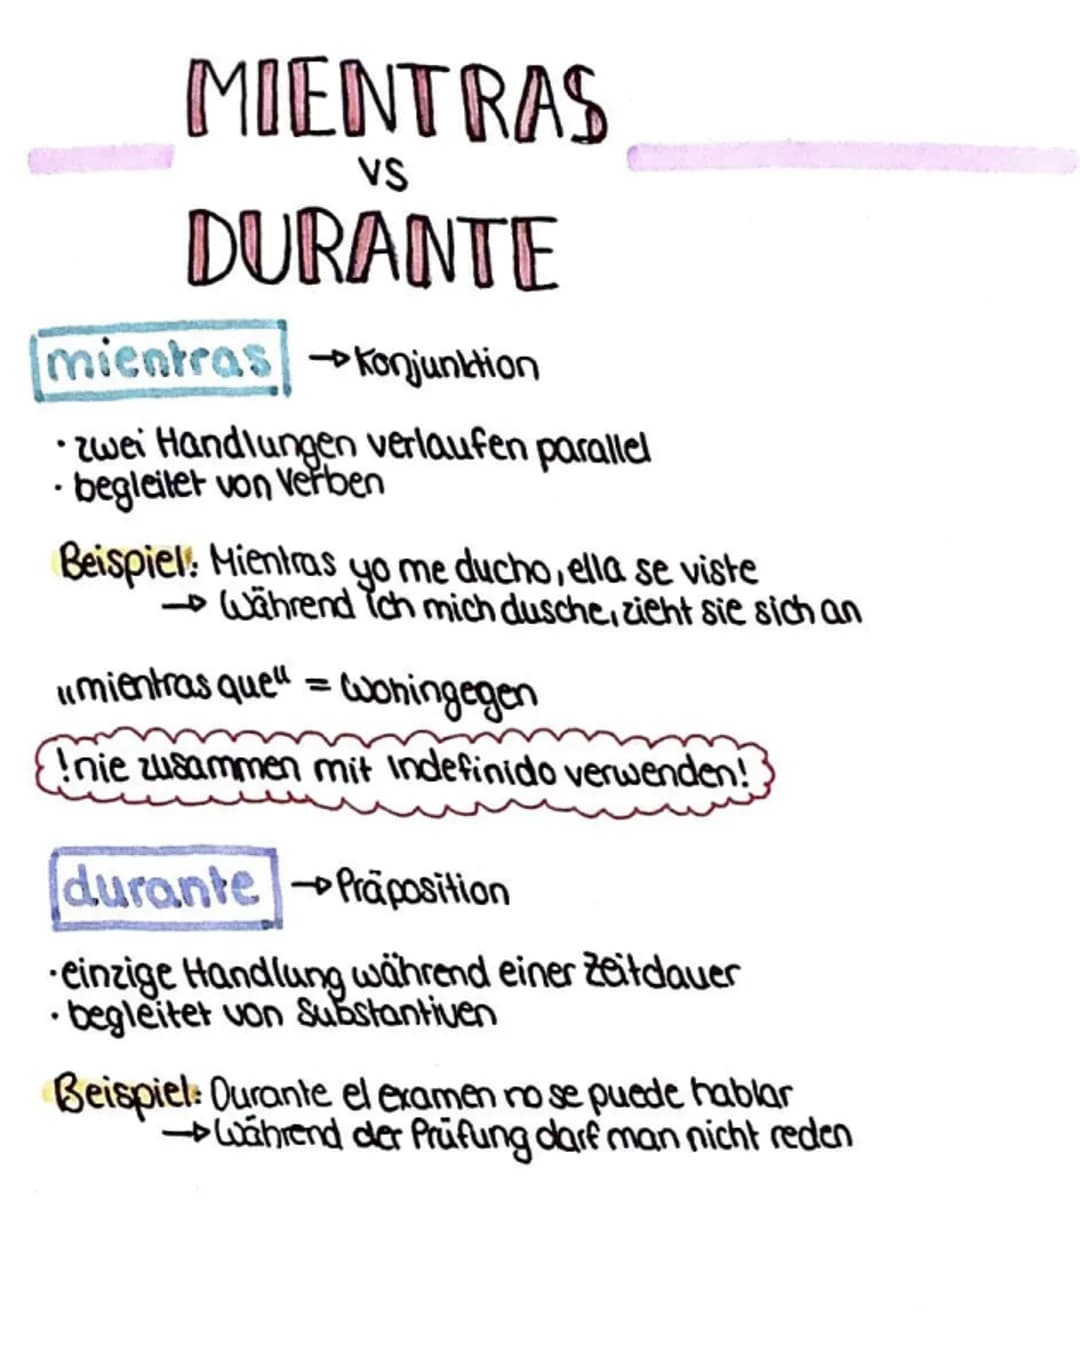 MIENTRAS
vs
DURANTE
mientras → Konjunktion
· zwei Handlungen verlaufen parallel
· begleitet von Verben
Beispiel: Mientras yo me ducho, ella se viste
→ Während ich mich dusche, zieht sie sich an
„mientras que“ = wohingegen
!nie zusammen mit indefinido verwenden!
durante → Präposition
· einzige Handlung während einer Zeitdauer
· begleitet von Substantiven
Beispiel: Durante el examen no se puede hablar
→ Während der Prüfung darf man nicht reden